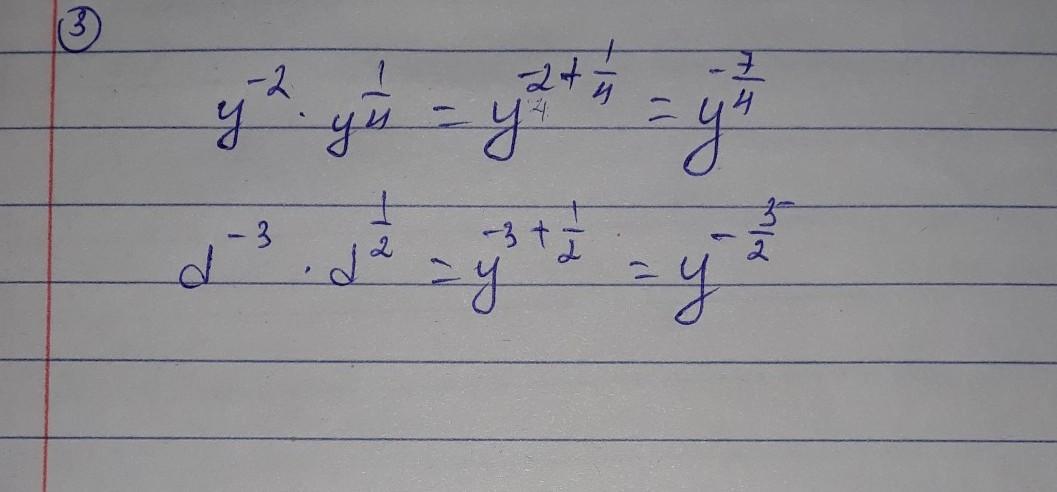 3
y^{-2} · y^{\frac{1}{4}} = y^{-2+\frac{1}{4}} = y^{-\frac{7}{4}}
d^{-3} · d^{\frac{1}{2}} = y^{-3+\frac{1}{2}} = y^{-\frac{5}{2}}